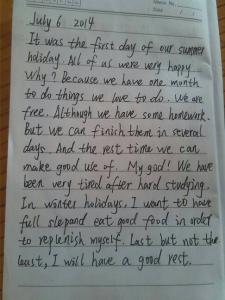 July 6 2014
It was the first day of our summer
holiday. All of us were very happy
Why? Because we have one month
to do things we love to do. We are
free. Although we have some homework.
But we can finish them in several
days. And the rest time we can
make good use of. My god! We have
been very tired after hard studying.
In winter holidays, I want to have
full sleepand eat good food in order
to replenish myself. Last but not the
least, I will have a good rest.